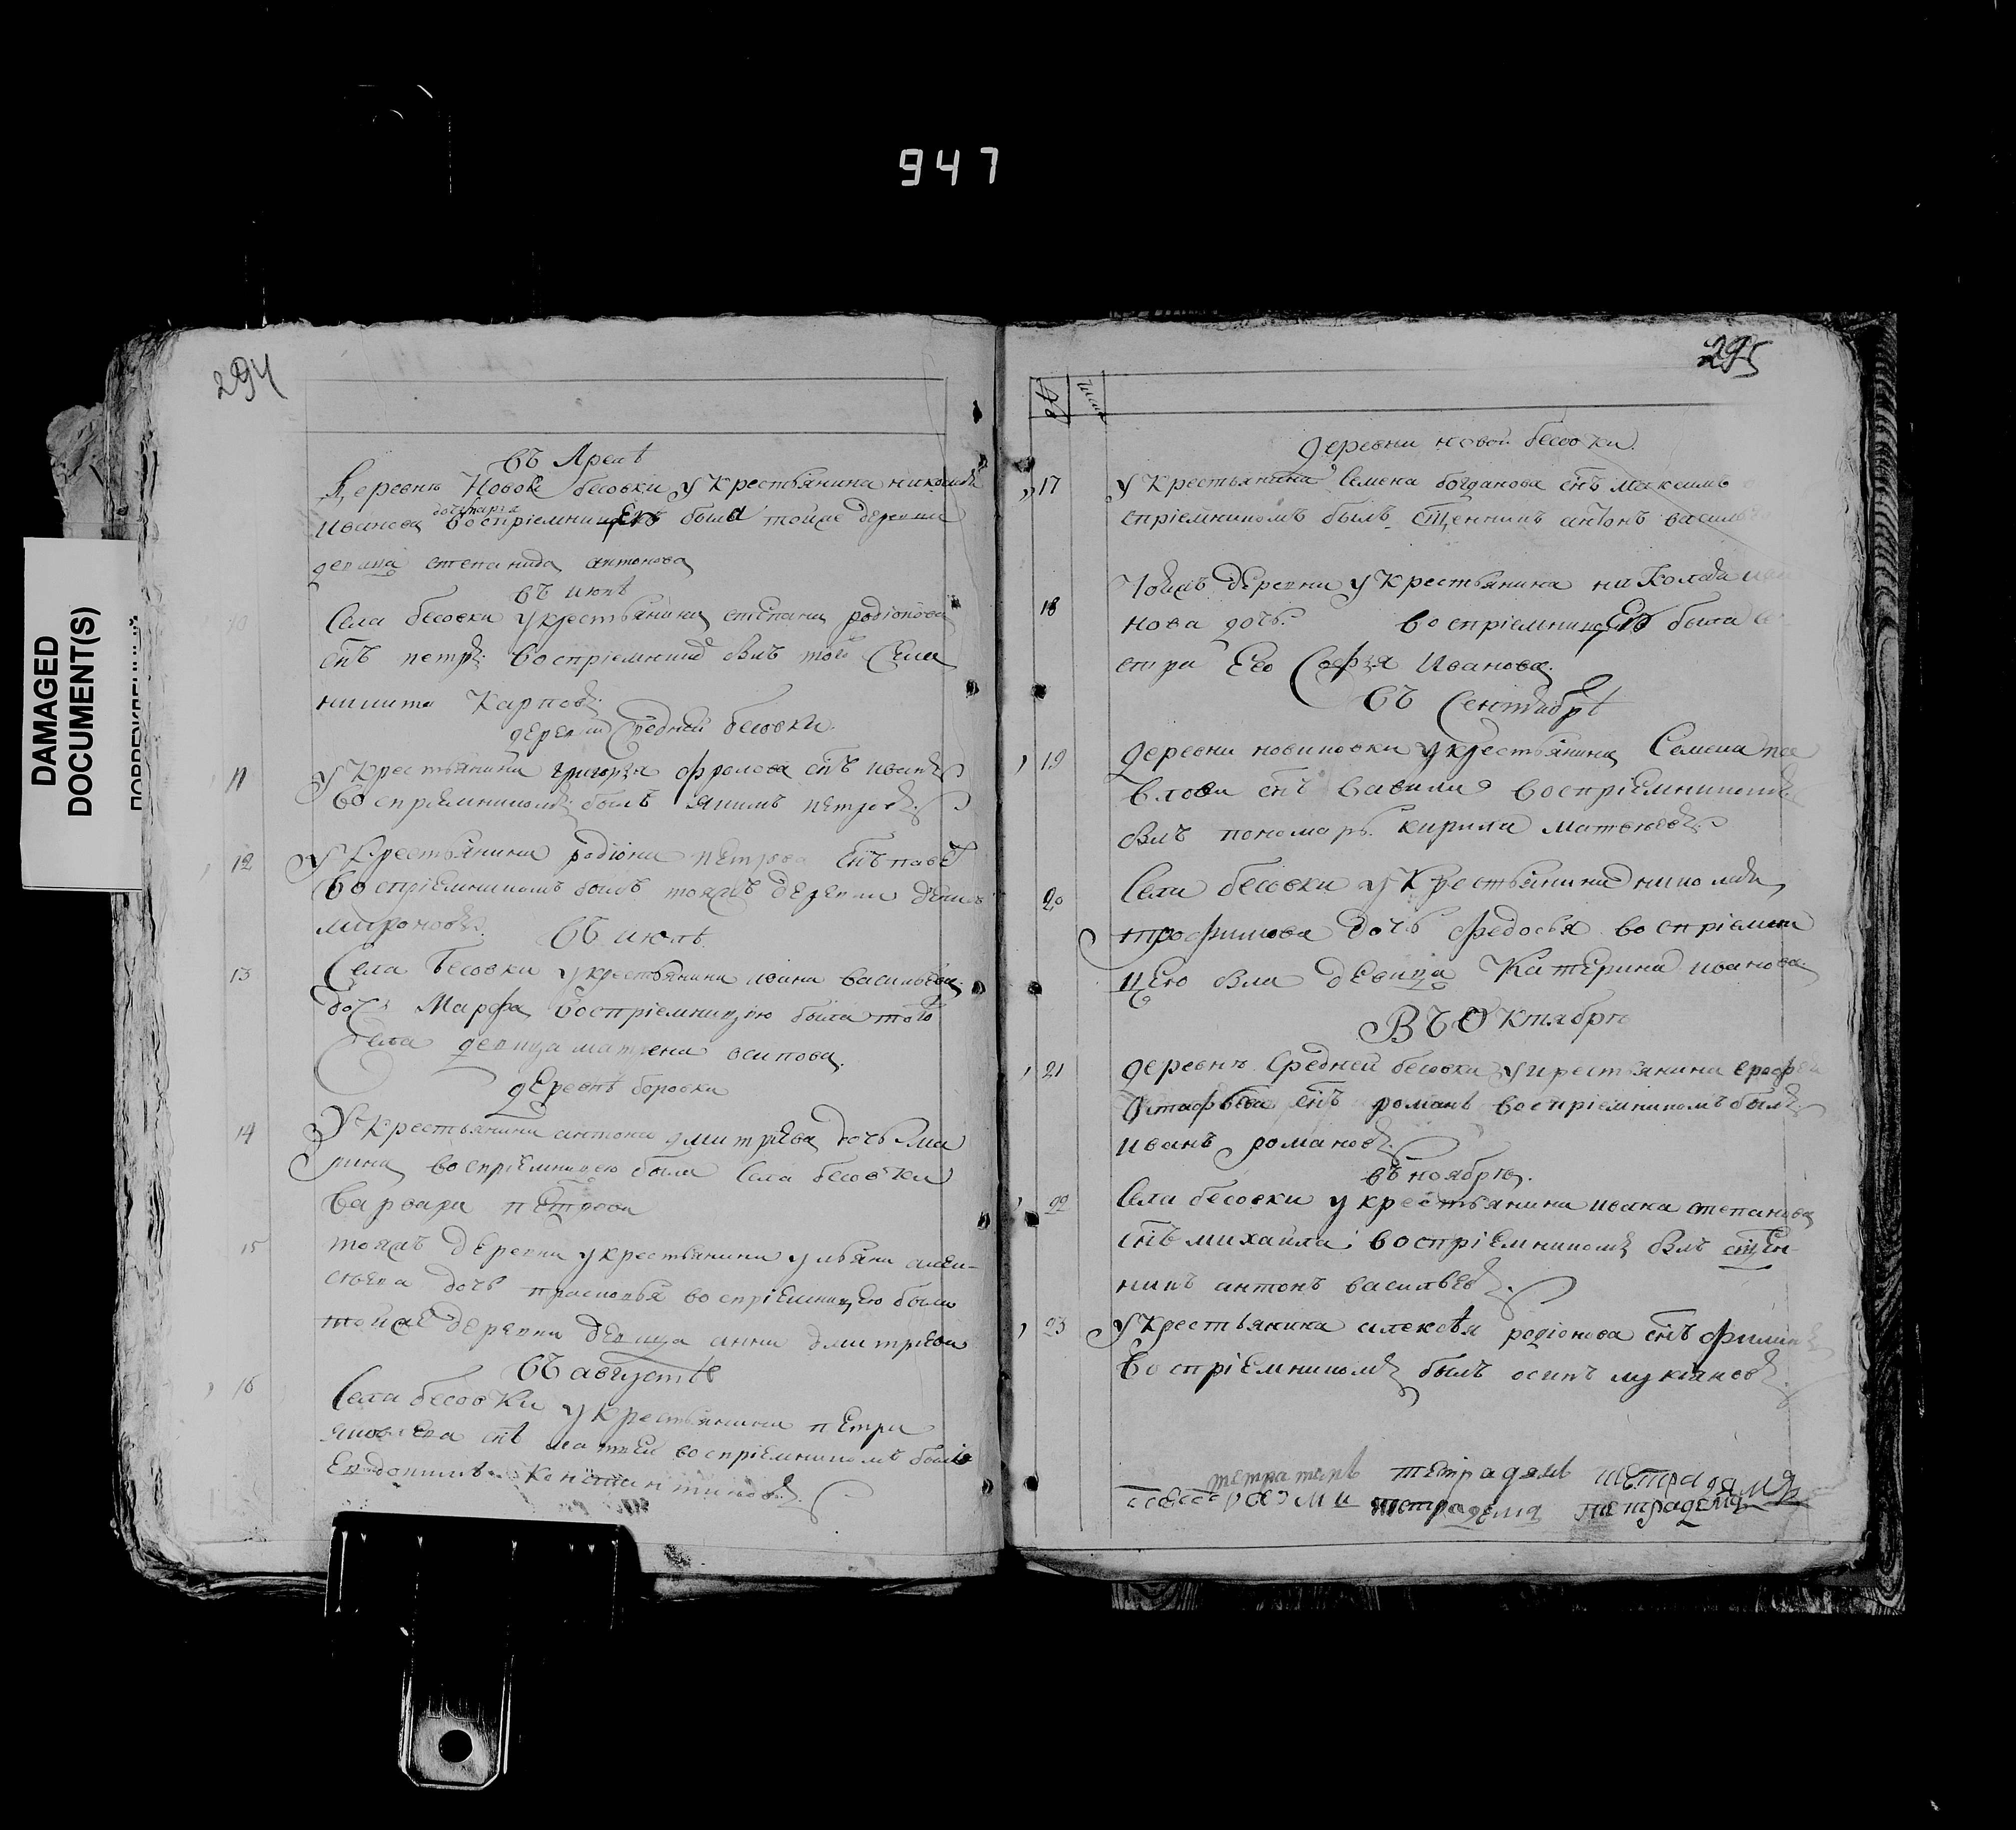 947
DAMAGED
DOCUMENT(S)
294
въ Апрелѣ
Деревнѣ Новой бесовки у Крестьянина николая
дочь
Иванова воспріемницею была тойже деревни
девица степанида антонова
въ июнѣ
10 Села бесовки у крестьянина степана родіонова
снъ петръ воспріемникъ былъ того села
никита Карповъ
деревни Средней бесовки
11 У Крестьянина григорья фролова снъ иванъ
воспріемникомъ былъ якимъ петровъ
12 У Крестьянина родіона петрова снъ павел
воспріемникомъ былъ тояжъ деревни денис
мироновъ
въ июлѣ
13 Села Бесовки у крестьянина ивана васильева
дочь Марфа воспріемницею была того
села девица матрена осипова
деревнѣ боровки
14 У Крестьянина антона дмитрієва дочь ма
рина воспріемницею была Села бесовки
варвара петрова
15 тояжъ деревни у крестьянина ульяна алек-
сѣева дочь прасковья воспріемницею была
тойже деревни девица анна дмитріева
въ августѣ
16 Села бесовки у крестьянина петра
яковлева снъ матвей воспріемникомъ былъ
Евдокимъ Константиновъ
295
№
числ
деревни новой бесовки
17 У Крестьянина Семена богданова снъ максимъ
спріемникомъ былъ сщенникъ антонъ василь
18 Тояжъ деревни у Крестьянина николая ива
нова дочь воспріемницею была се
стра Его Софья Иванова
въ Сентябрѣ
19 деревни новиковки у крестьянина Семена па
влова снъ вавила воспріемникомъ
былъ пономарь кирила матвѣевъ
20 Села бесовки у Крестьянина николая
трофимова дочь федосья воспріемни
цею была девица Катерина иванова
ВЪ Октябрѣ
21 деревнѣ Средней бесовки у крестьянина ерофея
Устафьева снъ романъ воспріемникомъ былъ
иванъ романовъ
въ ноябрѣ
22 Села бесовки у крестьянина ивана степанова
снъ михайла воспріемникомъ былъ сщен-
никъ антонъ васильевъ
23 У Крестьянина алексѣя родіонова снъ филипъ
воспріемникомъ былъ осипъ лукіановъ
тетрадемъ тетрадемъ
тетрадемъ тетрадемъ